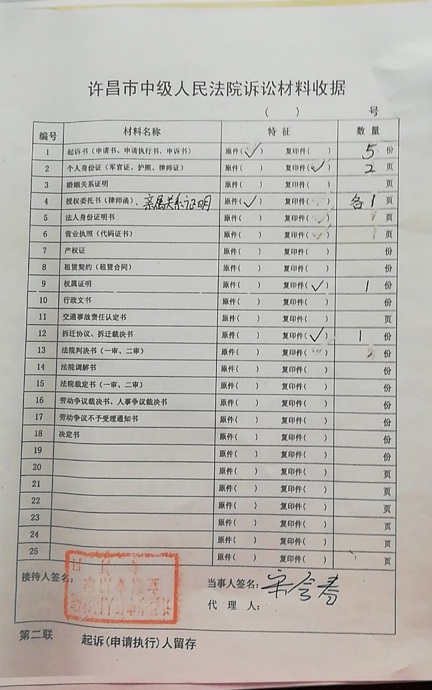 许昌市中级人民法院诉讼材料收据
( ) 号
编号 材料名称 特征 数量
1 起诉书(申请书、申请执行书、申诉书) 原件(✓) 复印件( ) 5份
2 个人身份证(军官证、护照、律师证) 原件( ) 复印件(✓) 2页
3 婚姻关系证明 原件( ) 复印件( ) 页
4 授权委托书(律师函)、亲属关系证明 原件(✓) 复印件( ) 各1页
5 法人身份证明书 原件( ) 复印件( ) 页
6 营业执照(代码证书) 原件( ) 复印件( ) 页
7 产权证 原件( ) 复印件( ) 份
8 租赁契约(租赁合同) 原件( ) 复印件( ) 份
9 权属证明 原件( ) 复印件(✓) 1份
10 行政文书 原件( ) 复印件( ) 份
11 交通事故责任认定书 原件( ) 复印件( ) 页
12 拆迁协议、拆迁裁决书 原件( ) 复印件(✓) 1份
13 法院判决书(一审、二审) 原件( ) 复印件( ) 份
14 法院调解书 原件( ) 复印件( ) 份
15 法院裁定书(一审、二审) 原件( ) 复印件( ) 份
16 劳动争议裁决书、人事争议裁决书 原件( ) 复印件( ) 份
17 劳动争议不予受理通知书 原件( ) 复印件( ) 份
18 决定书 原件( ) 复印件( ) 份
19 原件( ) 复印件( ) 页
20 原件( ) 复印件( ) 页
21 原件( ) 复印件( ) 页
22 原件( ) 复印件( ) 页
23 原件( ) 复印件( ) 页
24 原件( ) 复印件( ) 页
25 原件( ) 复印件( ) 页
接待人签名: 当事人签名:
代理人:
第二联 起诉(申请执行)人留存